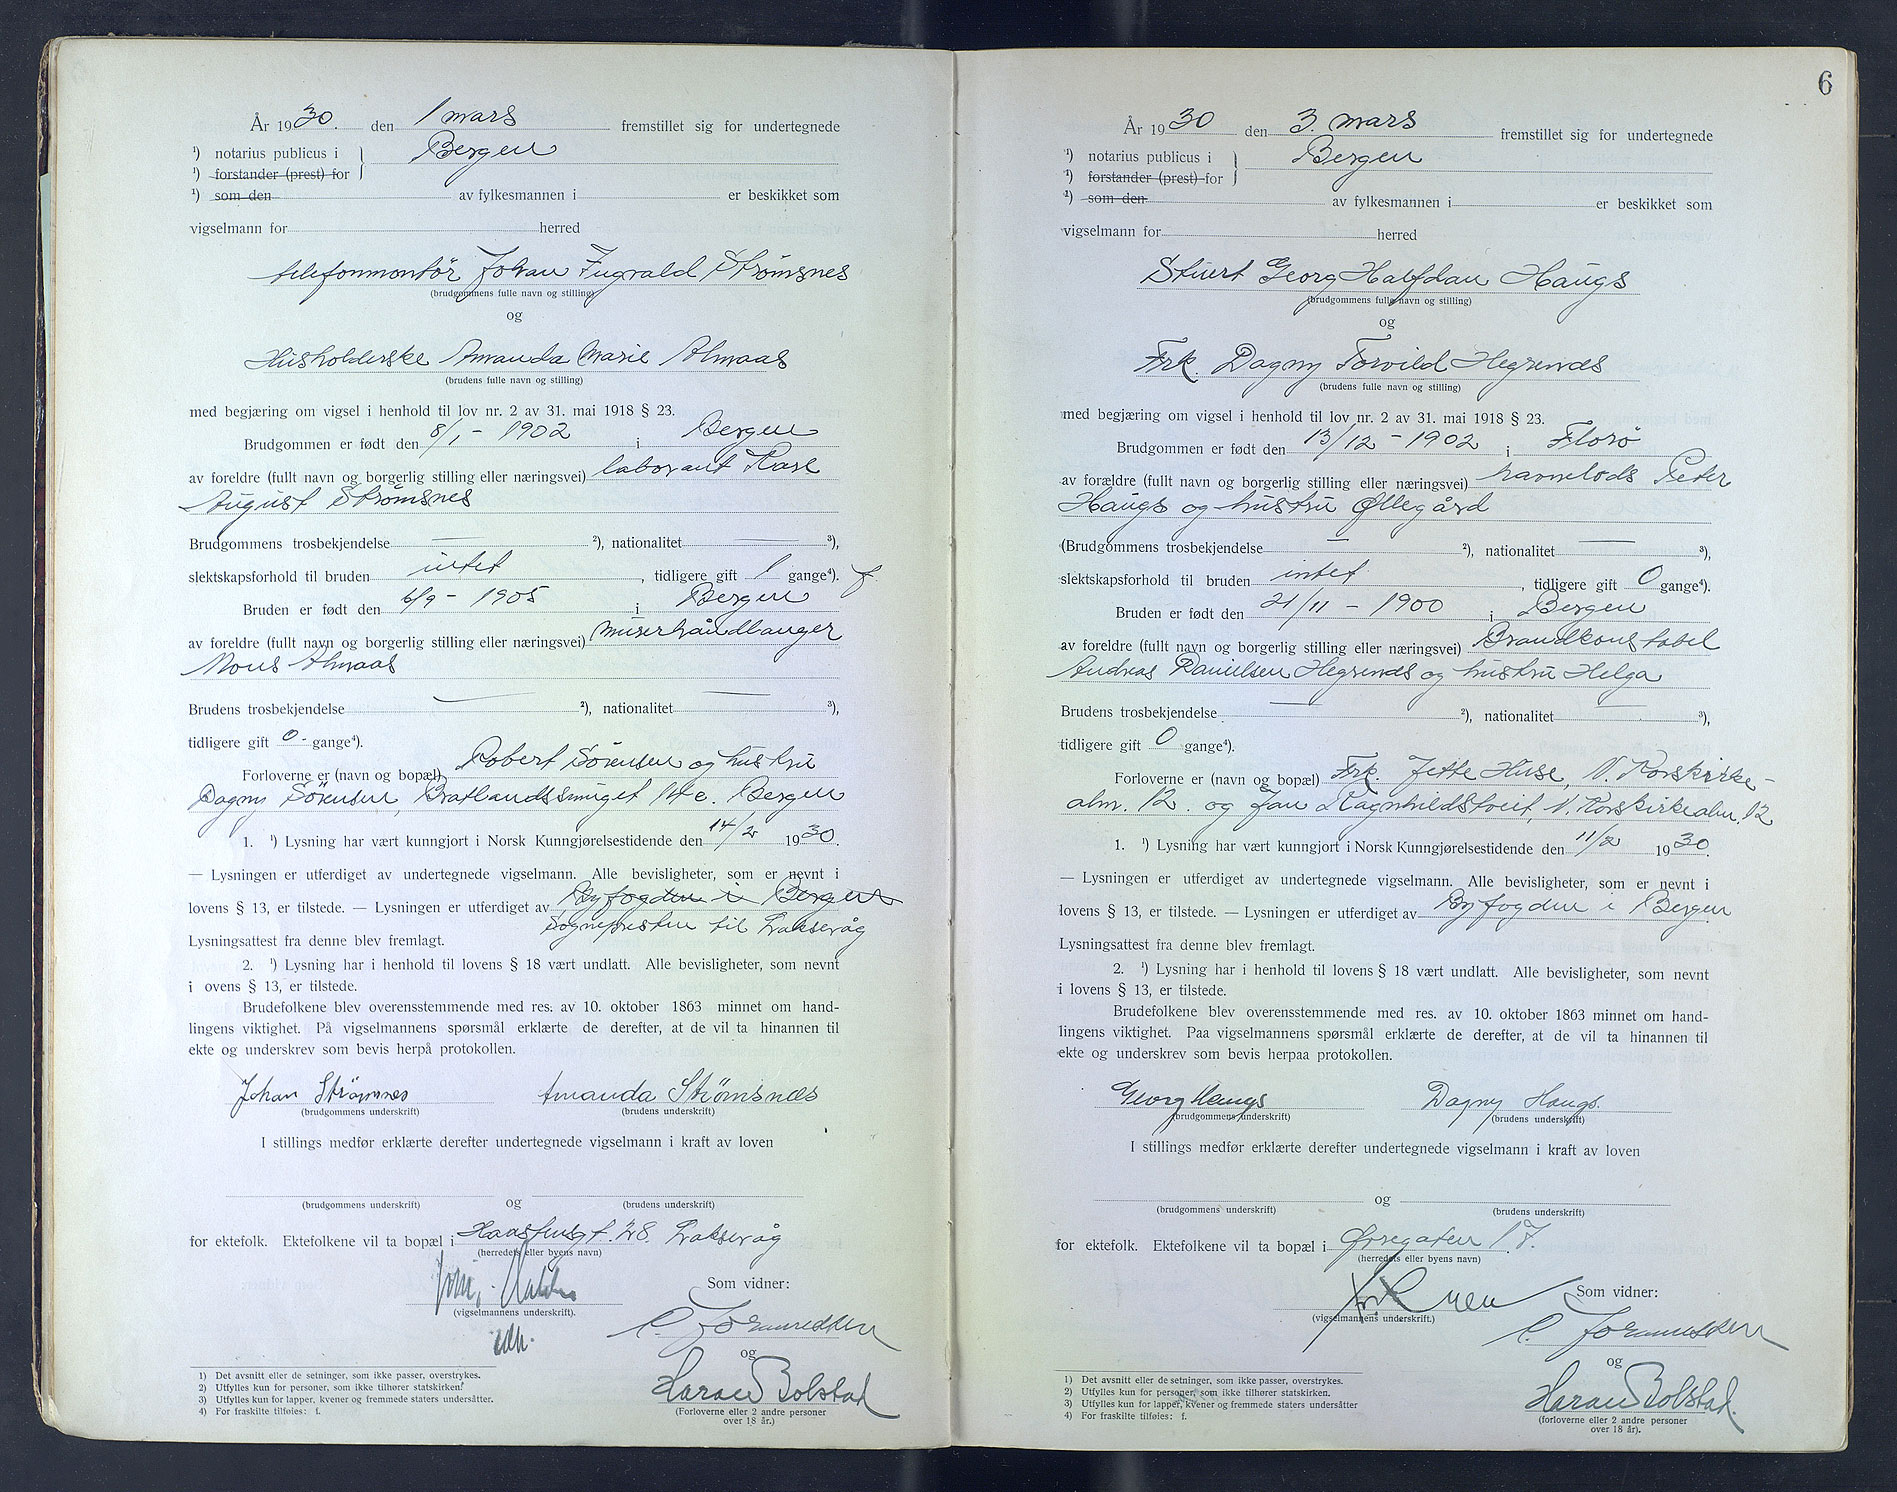 År 1930. den 1 mars fremstillet sig for undertegnede
¹) notarius publicus i } Bergen
¹) forstander (prest) for
¹) som den av fylkesmannen i er beskikket som
vigselmann for herred
telefonmontør Johan Ingvald Strømsnes
(brudgommens fulle navn og stilling)
og
Husholderske Amanda Marie Almaas
(brudens fulle navn og stilling)
med begjæring om vigsel i henhold til lov nr. 2 av 31. mai 1918 § 23.
Brudgommen er født den 8/1 - 1902 i Bergen
av foreldre (fullt navn og borgerlig stilling eller næringsvei) laborant Karl
August Strømsnes
Brudgommens trosbekjendelse — ²), nationalitet — ³),
slektskapsforhold til bruden intet, tidligere gift 1 gange⁴). f.
Bruden er født den 6/9 - 1905 i Bergen
av foreldre (fullt navn og borgerlig stilling eller næringsvei) murerhåndlanger
Mons Almaas
Brudens trosbekjendelse — ²), nationalitet — ³),
tidligere gift 0 gange⁴).
Forloverne er (navn og bopæl) Robert Sørensen og hustru
Dagny Sørensen, Bratlandssmuget 14 c. Bergen
1. ¹) Lysning har vært kunngjort i Norsk Kunngjørelsestidende den 14/2 1930.
— Lysningen er utferdiget av undertegnede vigselmann. Alle bevisligheter, som er nevnt i
lovens § 13, er tilstede. — Lysningen er utferdiget av Byfogden i Bergen
Sognepresten til Laksevåg
Lysningsattest fra denne blev fremlagt.
2. ¹) Lysning har i henhold til lovens § 18 vært undlatt. Alle bevisligheter, som nevnt
i ovens § 13, er tilstede.
Brudefolkene blev overensstemmende med res. av 10. oktober 1863 minnet om hand-
lingens viktighet. På vigselmannens spørsmål erklærte de derefter, at de vil ta hinannen til
ekte og underskrev som bevis herpå protokollen.
Johan Strømsnes Amanda Strømsnæs
(brudgommens underskrift) (brudens underskrift)
I stillings medfør erklærte derefter undertegnede vigselmann i kraft av loven
og
(brudgommens underskrift) (brudens underskrift)
for ektefolk. Ektefolkene vil ta bopæl i 28. Laksevåg
(herredets eller byens navn)
Som vidner:
(vigselmannens underskrift).
C. Johannessen
og
Haran Bolstad
(Forloverne eller 2 andre personer
over 18 år.)
1) Det avsnitt eller de setninger, som ikke passer, overstrykes.
2) Utfylles kun for personer, som ikke tilhører statskirken.
3) Utfylles kun for lapper, kvener og fremmede staters undersåtter.
4) For fraskilte tilføies: f.
6
År 1930 den 3. mars fremstillet sig for undertegnede
¹) notarius publicus i } Bergen
¹) forstander (prest) for
¹) som den av fylkesmannen i er beskikket som
vigselmann for herred
Stuert Georg Halfdan Haugs
(brudgommens fulle navn og stilling)
og
Frk. Dagny Torvild Hegrenæs
(brudens fulle navn og stilling)
med begjæring om vigsel i henhold til lov nr. 2 av 31. mai 1918 § 23.
Brudgommen er født den 13/12 - 1902 i Florø
av forældre (fullt navn og borgerlig stilling eller næringsvei) havnelods Peter
Haugs og hustru Øllegård
(Brudgommens trosbekjendelse — ²), nationalitet — ³),
slektskapsforhold til bruden intet, tidligere gift 0 gange⁴).
Bruden er født den 21/11 - 1900 i Bergen
av foreldre (fullt navn og borgerlig stilling eller næringsvei) Brandkonstabel
Andreas Danielsen Hegrenæs og hustru Helga
Brudens trosbekjendelse — ²), nationalitet — ³),
tidligere gift 0 gange⁴).
Forloverne er (navn og bopæl) Frk. Jette Huse, N. Korskirke-
alm. 12. og Jan Ragnhildstveit, N. Korskirkealm. 12
1. ¹) Lysning har vært kunngjort i Norsk Kunngjørelsestidende den 11/2 1930.
— Lysningen er utferdiget av undertegnede vigselmann. Alle bevisligheter, som er nevnt i
lovens § 13, er tilstede. — Lysningen er utferdiget av Byfogden i Bergen
Lysningsattest fra denne blev fremlagt.
2. ¹) Lysning har i henhold til lovens § 18 vært undlatt. Alle bevisligheter, som nevnt
i lovens § 13, er tilstede.
Brudefolkene blev overensstemmende med res. av 10. oktober 1863 minnet om hand-
lingens viktighet. Paa vigselmannens spørsmål erklærte de derefter, at de vil ta hinannen til
ekte og underskrev som bevis herpaa protokollen.
Georg Haugs Dagny Haugs.
(brudgommens underskrift) (brudens underskrift)
I stillings medfør erklærte derefter undertegnede vigselmann i kraft av loven
og
(brudgommens underskrift) (brudens underskrift)
for ektefolk. Ektefolkene vil ta bopæl i Øvregaten 17.
(herredets eller byens navn)
Som vidner:
(vigselmannens underskrift.)
C. Johannessen
og
Haran Bolstad.
(forloverne eller 2 andre personer
over 18 år).
1) Det avsnitt eller de setninger, som ikke passer, overstrykes.
2) Utfylles kun for personer, som ikke tilhører statskirken.
3) Utfylles kun for lapper, kvener og fremmede staters undersåtter
4) For fraskilte tilføies: f.